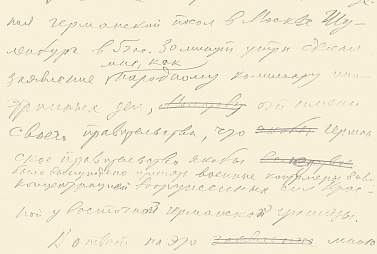 ном германский посол в Москве Шу-
ленбург в 5 час. 30 минут утра сделал
мне, как
заявление народному комиссару ино-
странных дел, от имени
своего правительства, что герман
ское правительство якобы
было вынуждено принять военные контрмеры в связи
концентрацией вооруженных сил Крас-
ной у восточной германской границы.
В ответ на это мною